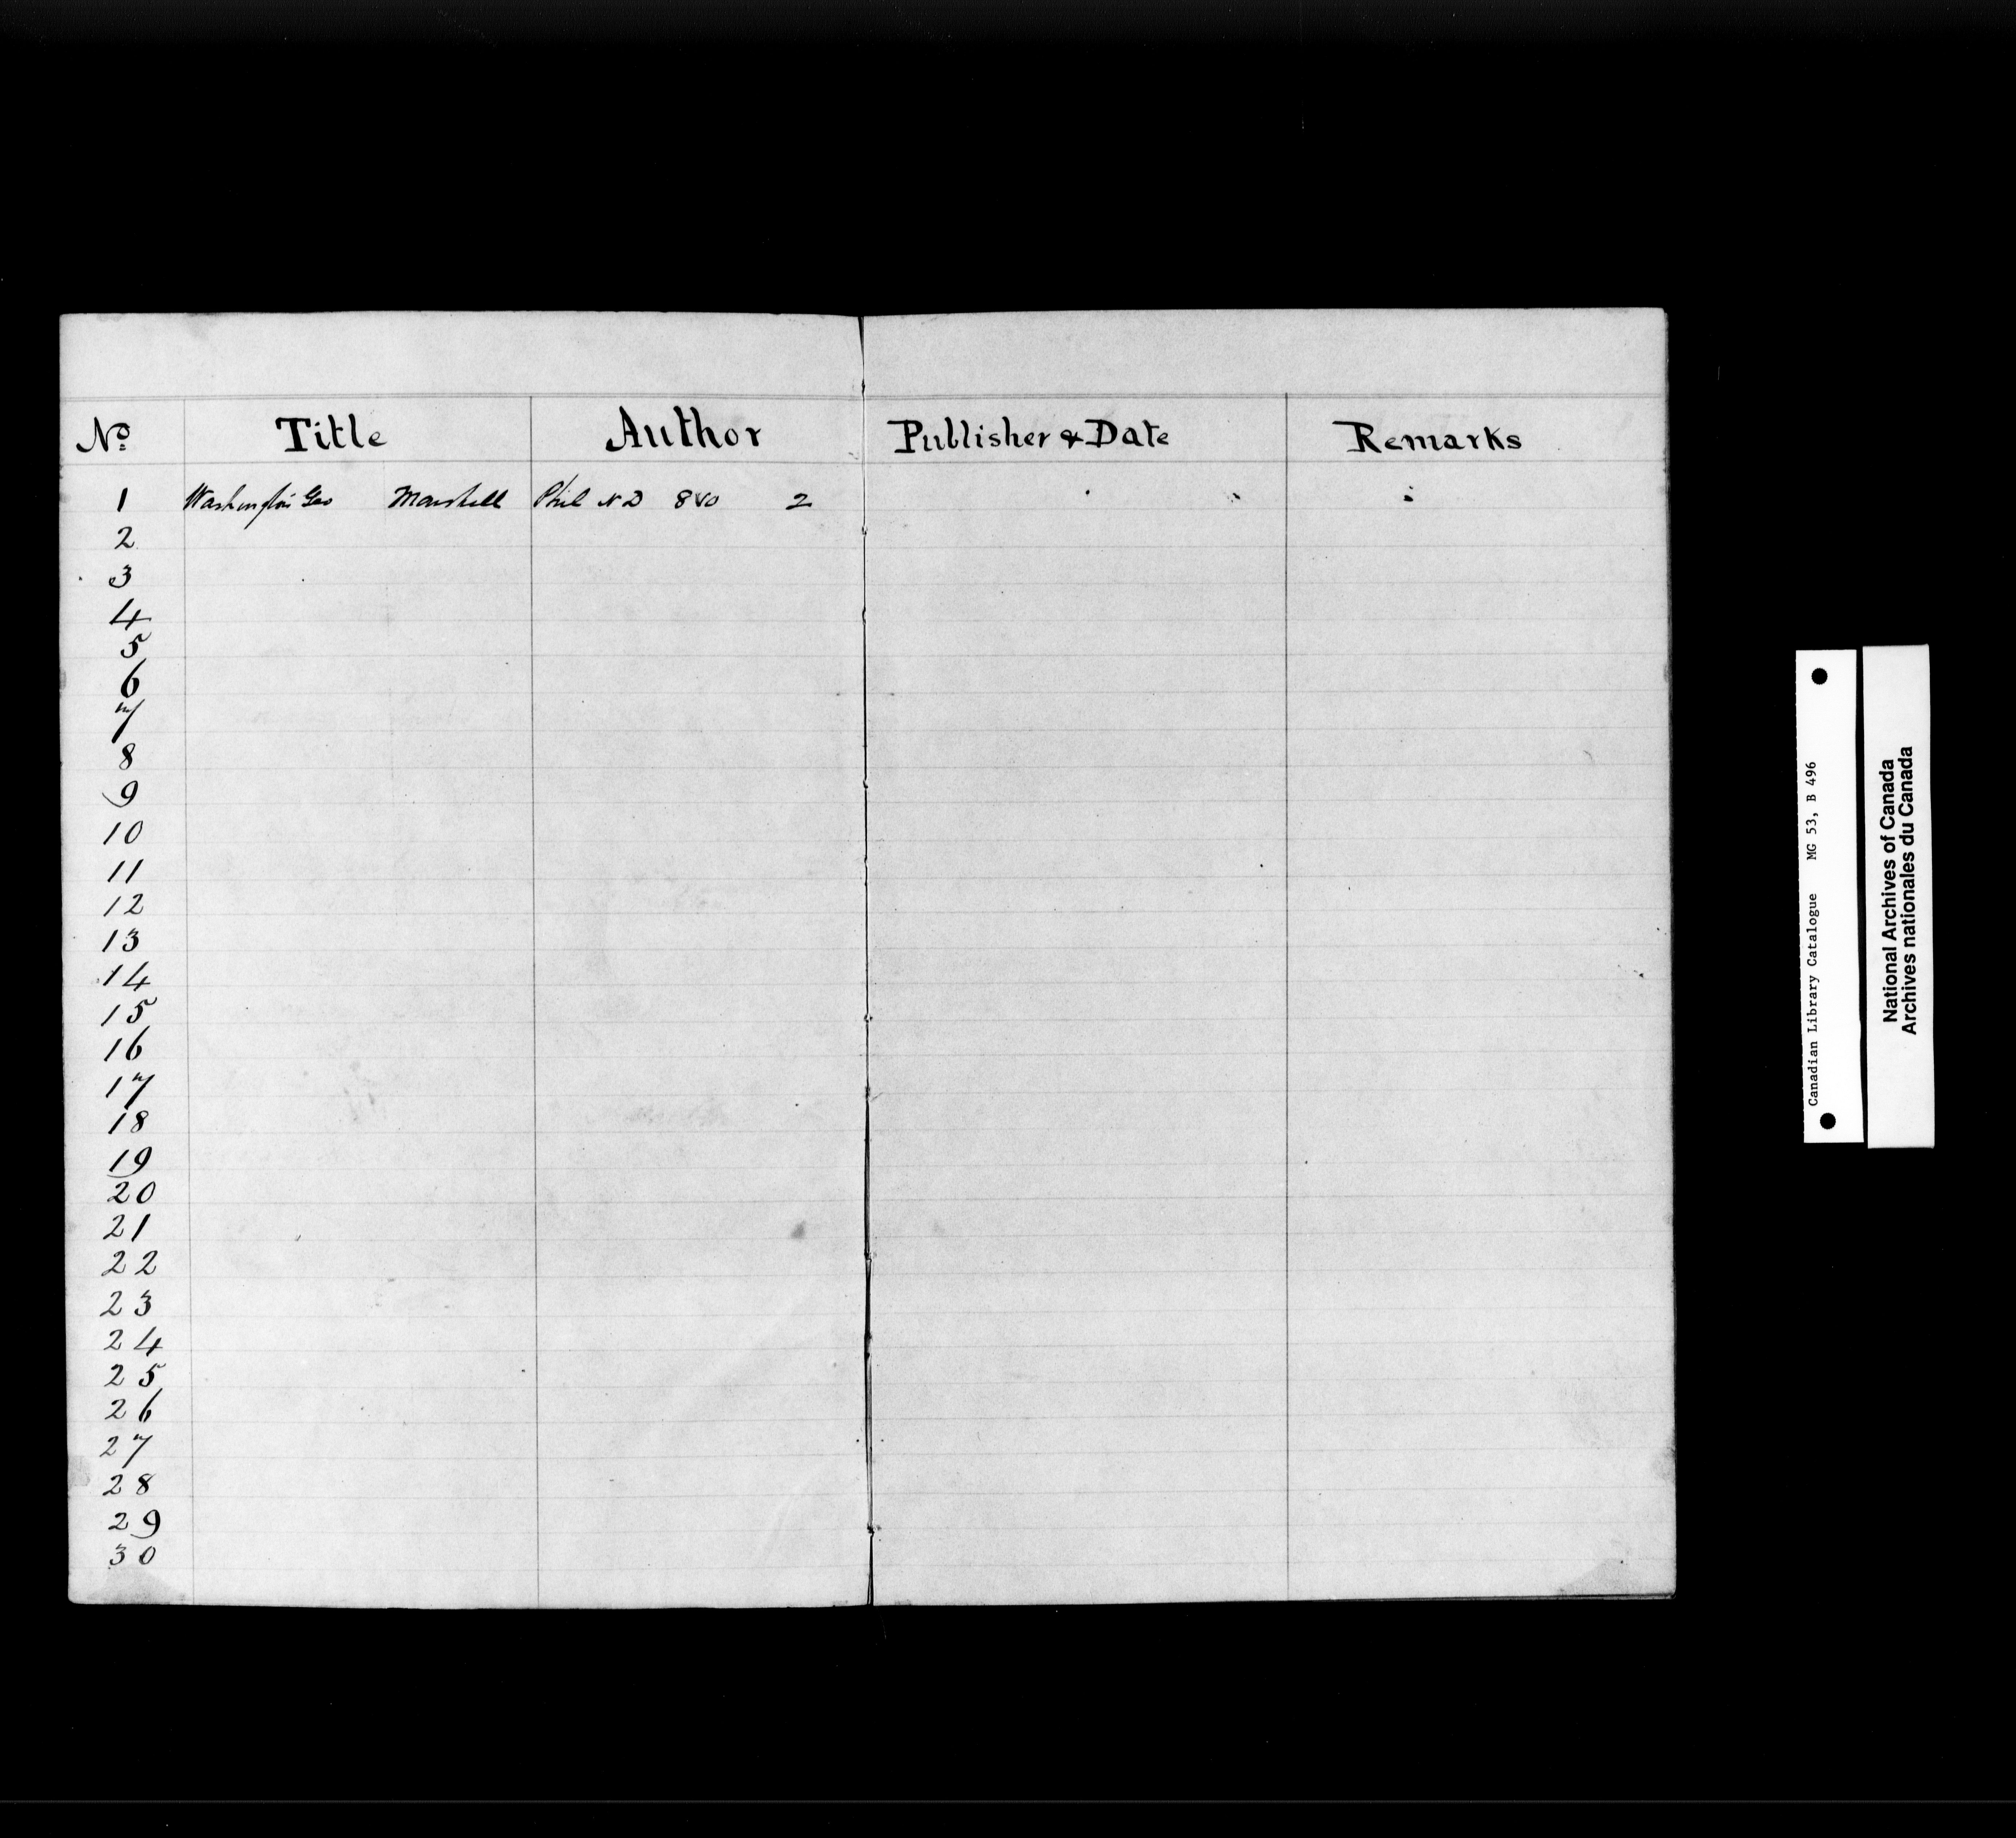 No Title Author Publisher & Date Remarks
1 Washington Geo Marshall Phil N D 8vo 2
2
3
4
5
6
7
8
9
10
11
12
13
14
15
16
17
18
19
20
21
22
23
24
25
26
27
28
29
30
Canadian Library Catalogue MG 53, B 496
National Archives of Canada
Archives nationales du Canada